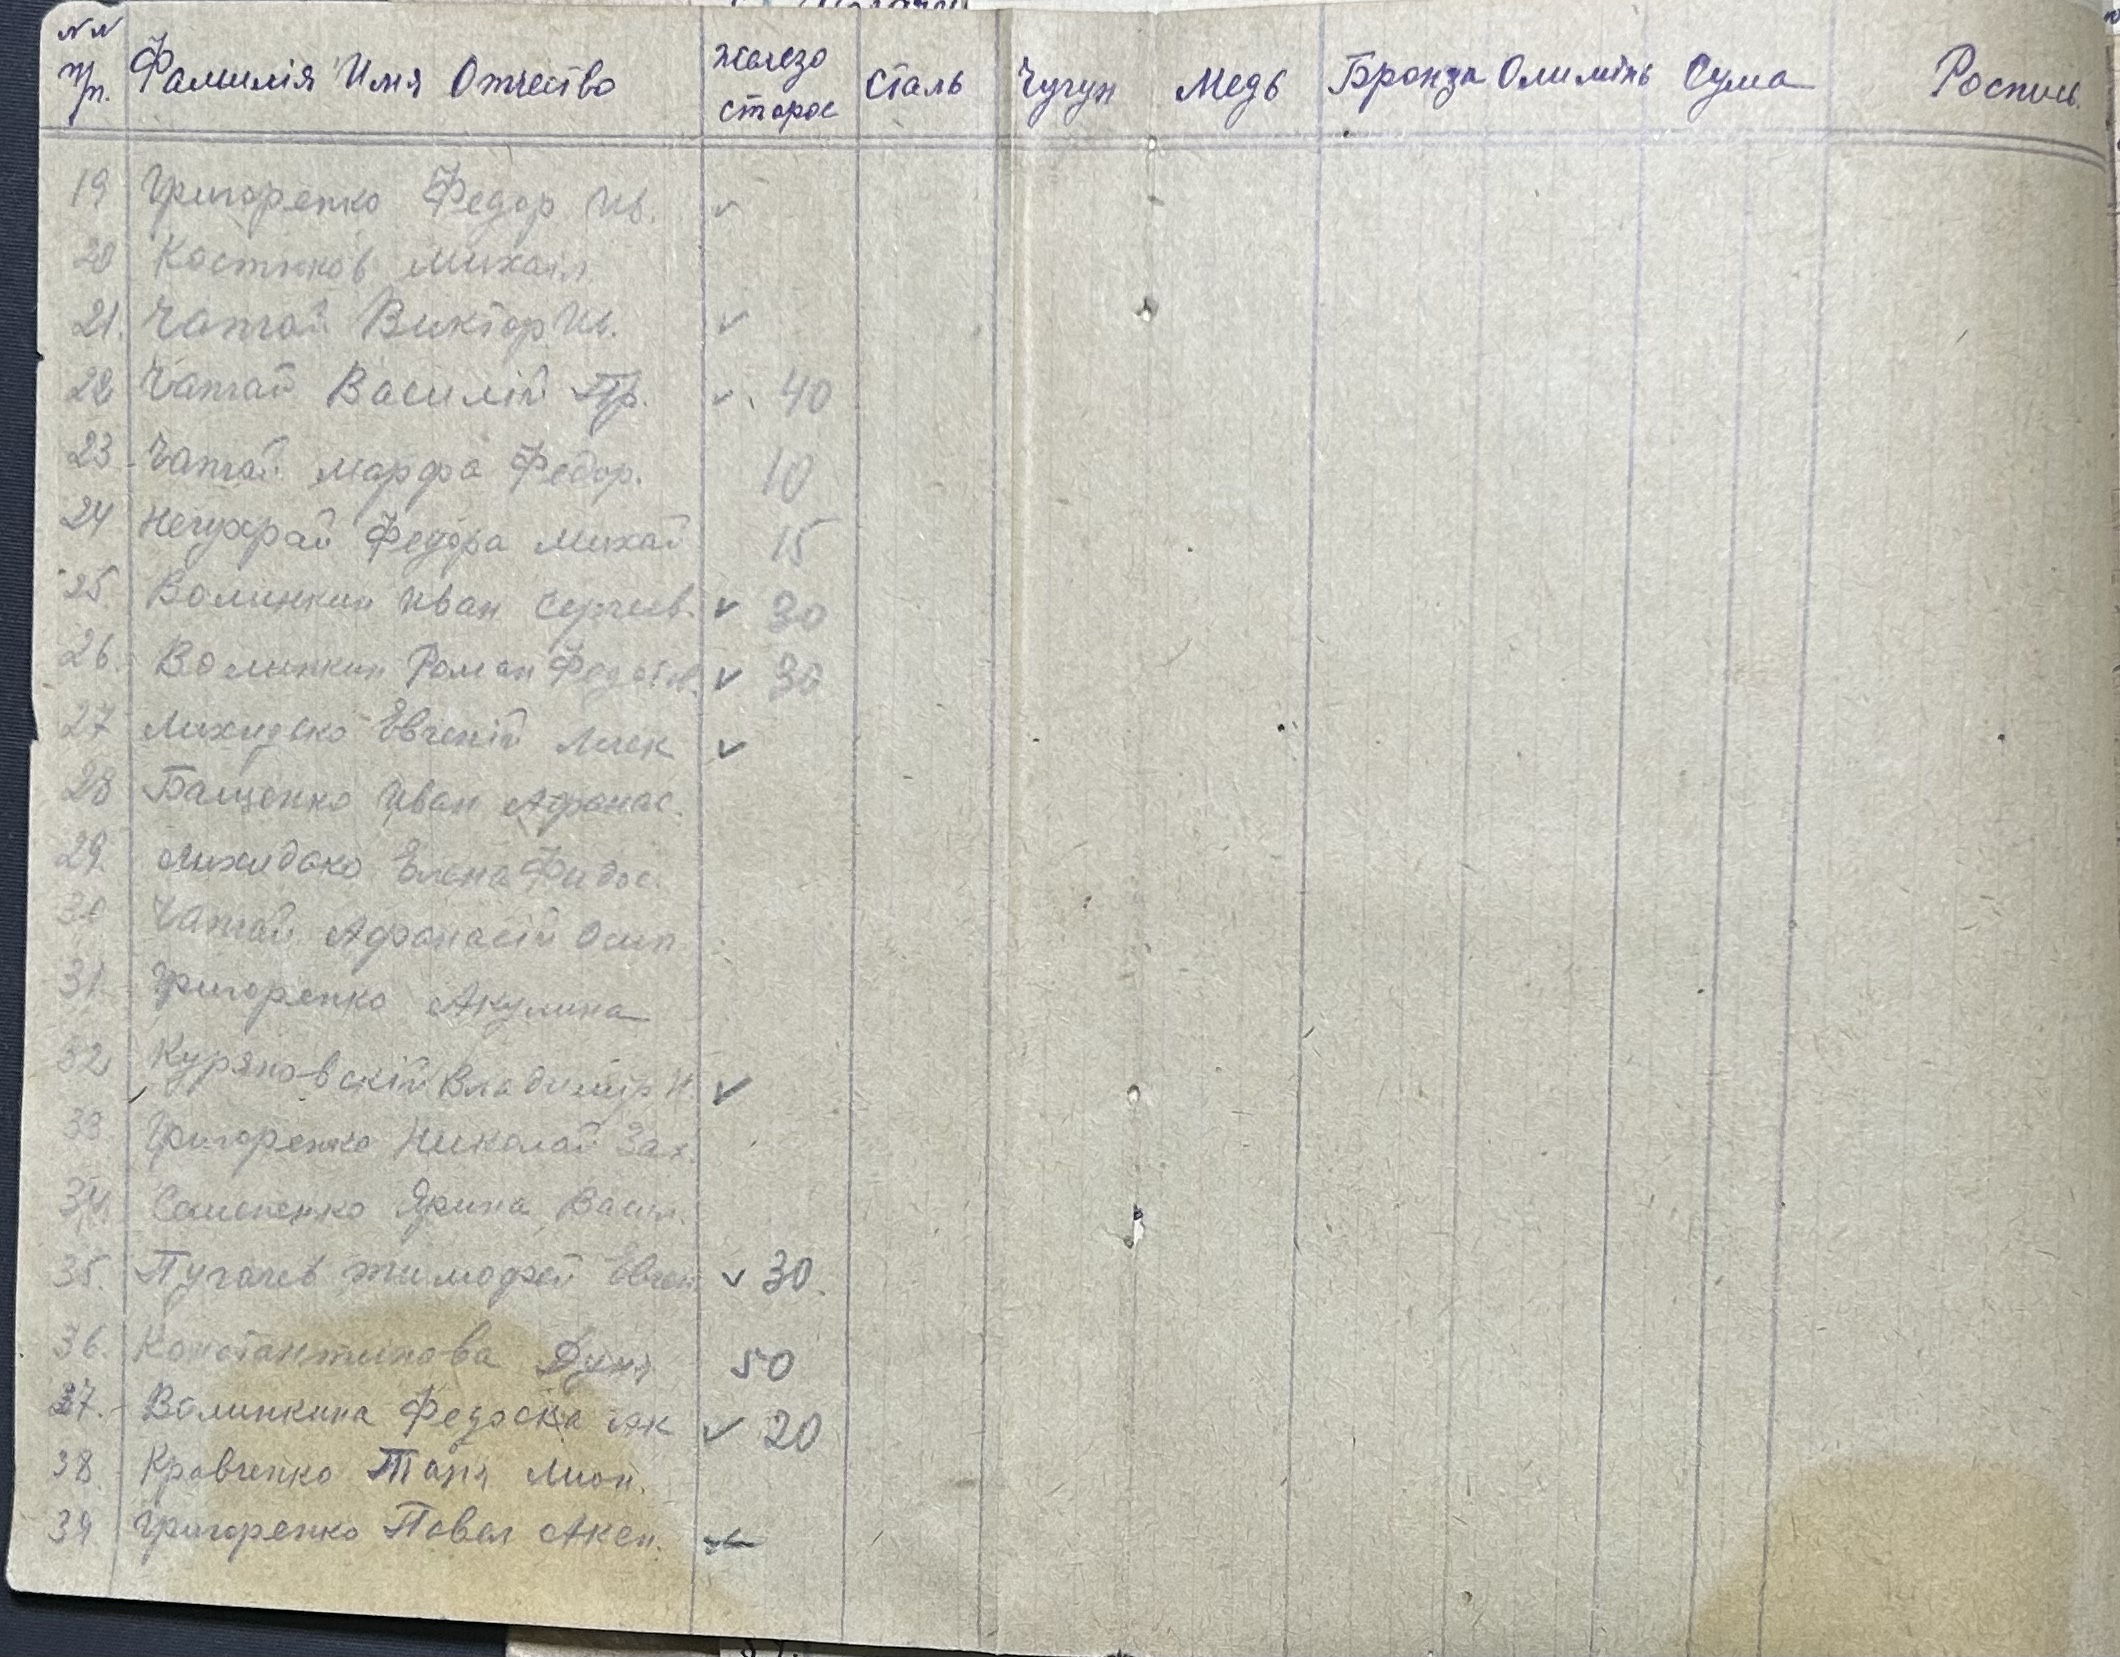 №№ пр. Фамилія Имя Отчество Железо старое Сталь Чугун Медь Бронза Олимінь Сума Роспись
19 Григоренко Федор Ив. ✓
20 Костюков Михаіл
21. Чапай Виктор Ив. ✓
22 Чапай Василій Гр. ✓ 40
23 Чапай Марфа Федор. 10
24 Негурай Федора Михай 15
25. Волинкин Иван Сергеев. ✓ 30
26. Волинкин Роман ✓ 30
27 Лихидько Евгений Алек ✓
28 Бащенко Иван Афонас.
29. Лихидько Елена Фидос.
30 Чапай Афонасій Осип
31. Григоренко Акулина
32 Куряновскій Владимір Н ✓
33 Григоренко Николай Зах.
34. Ярина Васил.
35. Пугачев Тимофей Евген ✓ 30.
36. Константинова Дуня 50
37. Волинкина Федоска Як ✓ 20
38. Кравченко Таня
39 Григоренко Павел Аксен.